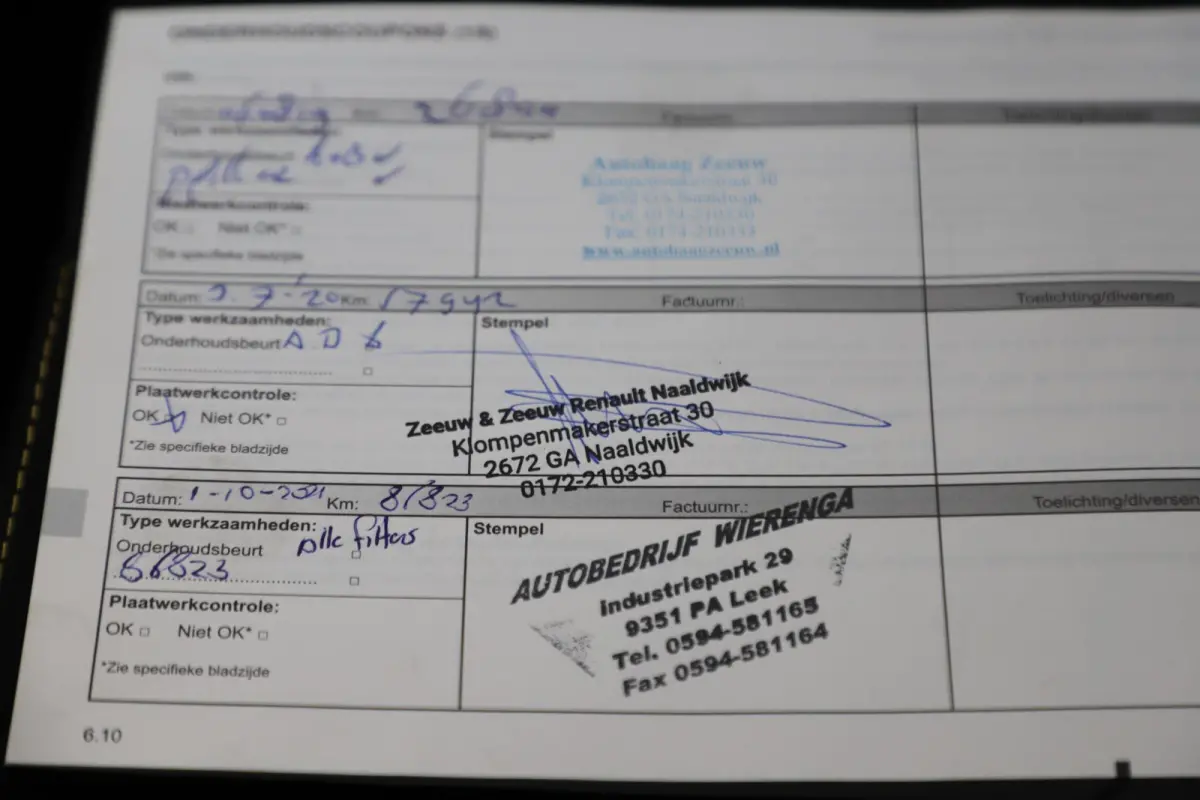 ONDERHOUDSCOUPONS
Factuurnr.:
Toelichting/diversen
Type werkzaamheden:
Stempel
Onderhoudsbeurt
Autohaag Zeeuw
Klompenmakerstraat 30
2672 GA Naaldwijk
Tel. 0174-210330
Fax.
www.autohaagzeeuw.nl
Plaatwerkcontrole:
OK □ Niet OK* □
*Zie specifieke bladzijde
Datum: 9.7-'20 Km:
Factuurnr.:
Toelichting/diversen
Type werkzaamheden:
Stempel
Onderhoudsbeurt A D B
Plaatwerkcontrole:
OK □ Niet OK* □
*Zie specifieke bladzijde
Zeeuw & Zeeuw Renault Naaldwijk
Klompenmakerstraat 30
2672 GA Naaldwijk
0172-210330
Datum: 1-10-2021 Km: 81823
Factuurnr.:
Toelichting/diversen
Type werkzaamheden:
Stempel
Onderhoudsbeurt alle filters
Plaatwerkcontrole:
OK □ Niet OK* □
*Zie specifieke bladzijde
AUTOBEDRIJF WIERENGA
Industriepark 29
9351 PA Leek
Tel. 0594-581165
Fax 0594-581164
6.10